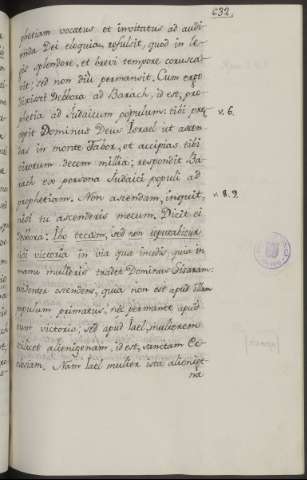 632.
phetiam vocatus et invitatus ad audi-
enda Dei eloquia, refulsit, quod in le-
gis splendore, et brevi tempore corusca-
vit, sed non diu permansit. Cum ergo
dixisset Debbora ad Barach, id est, pro-
phetia ad Judaicum populum: tibi præ-
v. 6.
cepit Dominus Deus Israel ut ascen-
das in monte Tabor, et accipias tibi
virorum decem millia; respondit Ba-
rach ex persona Judaici populi ad
prophetiam. Non ascendam, inquit,
v. 8. 9.
nisi tu ascenderis mecum. Dicit ei
Debbora: Ibo tecum, sed non reputabitur
tibi victoria in via qua incedis, quia in
manu mulieris tradet Dominus Sisaram:
evidenter ostendens, quia non est apud illum
populum primatus, nec permanet apud
eum victoria; sed apud Iael, mulierem
scilicet alienigenam, id est, sanctam Ec-
clesiam. Nam Iael mulier ista alienige-
na